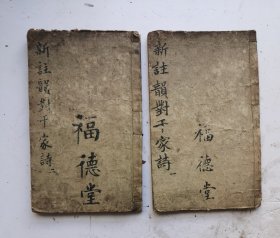 新註韻對千家詩二
福德堂
新註韻對千家詩一
福德堂